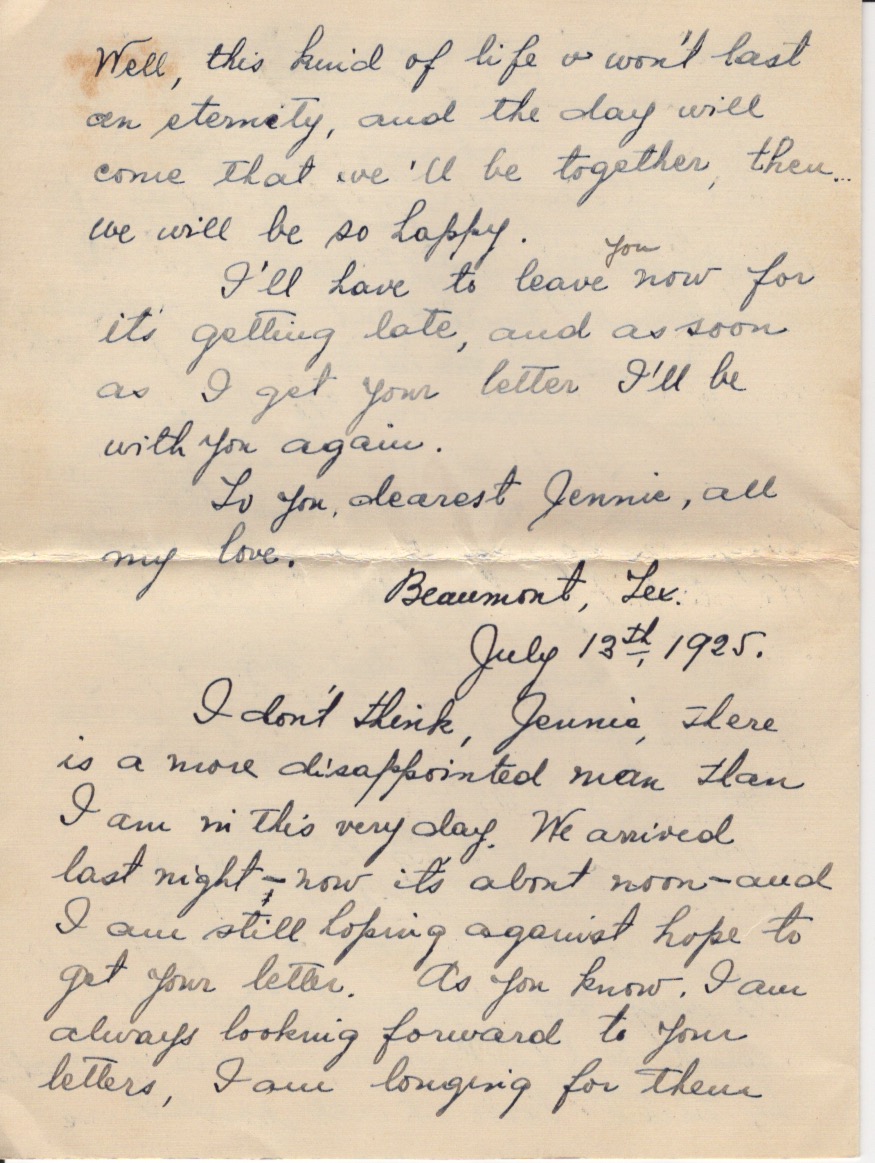 Well, this kind of life won't last
an eternity, and the day will
come that we'll be together, then...
we will be so happy.
you
I'll have to leave now for
it's getting late, and as soon
as I get your letter I'll be
with you again.
To you, dearest Jennie, all
my love.
Beaumont, Tex.
July 13th, 1925.
I don't think, Jennie, there
is a more disappointed man than
I am in this very day. We arrived
last night - now it's about noon - and
I am still hoping against hope to
get your letter. As you know, I am
always looking forward to your
letters, I am longing for them